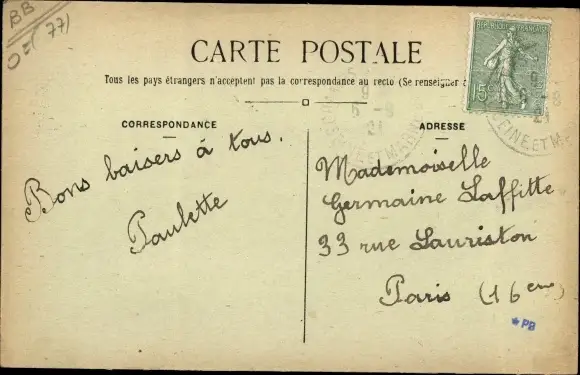 BB
(77)
CARTE POSTALE
Tous les pays étrangers n'acceptent pas la correspondance au recto (Se renseigner
RÉPUBLIQUE FRANÇAISE
15c
CORRESPONDANCE
Bons baisers à tous.
Paulette
ADRESSE
Mademoiselle
Germaine Laffitte
33 rue Lauriston
Paris (16eme)
*PB
SEINE ET M